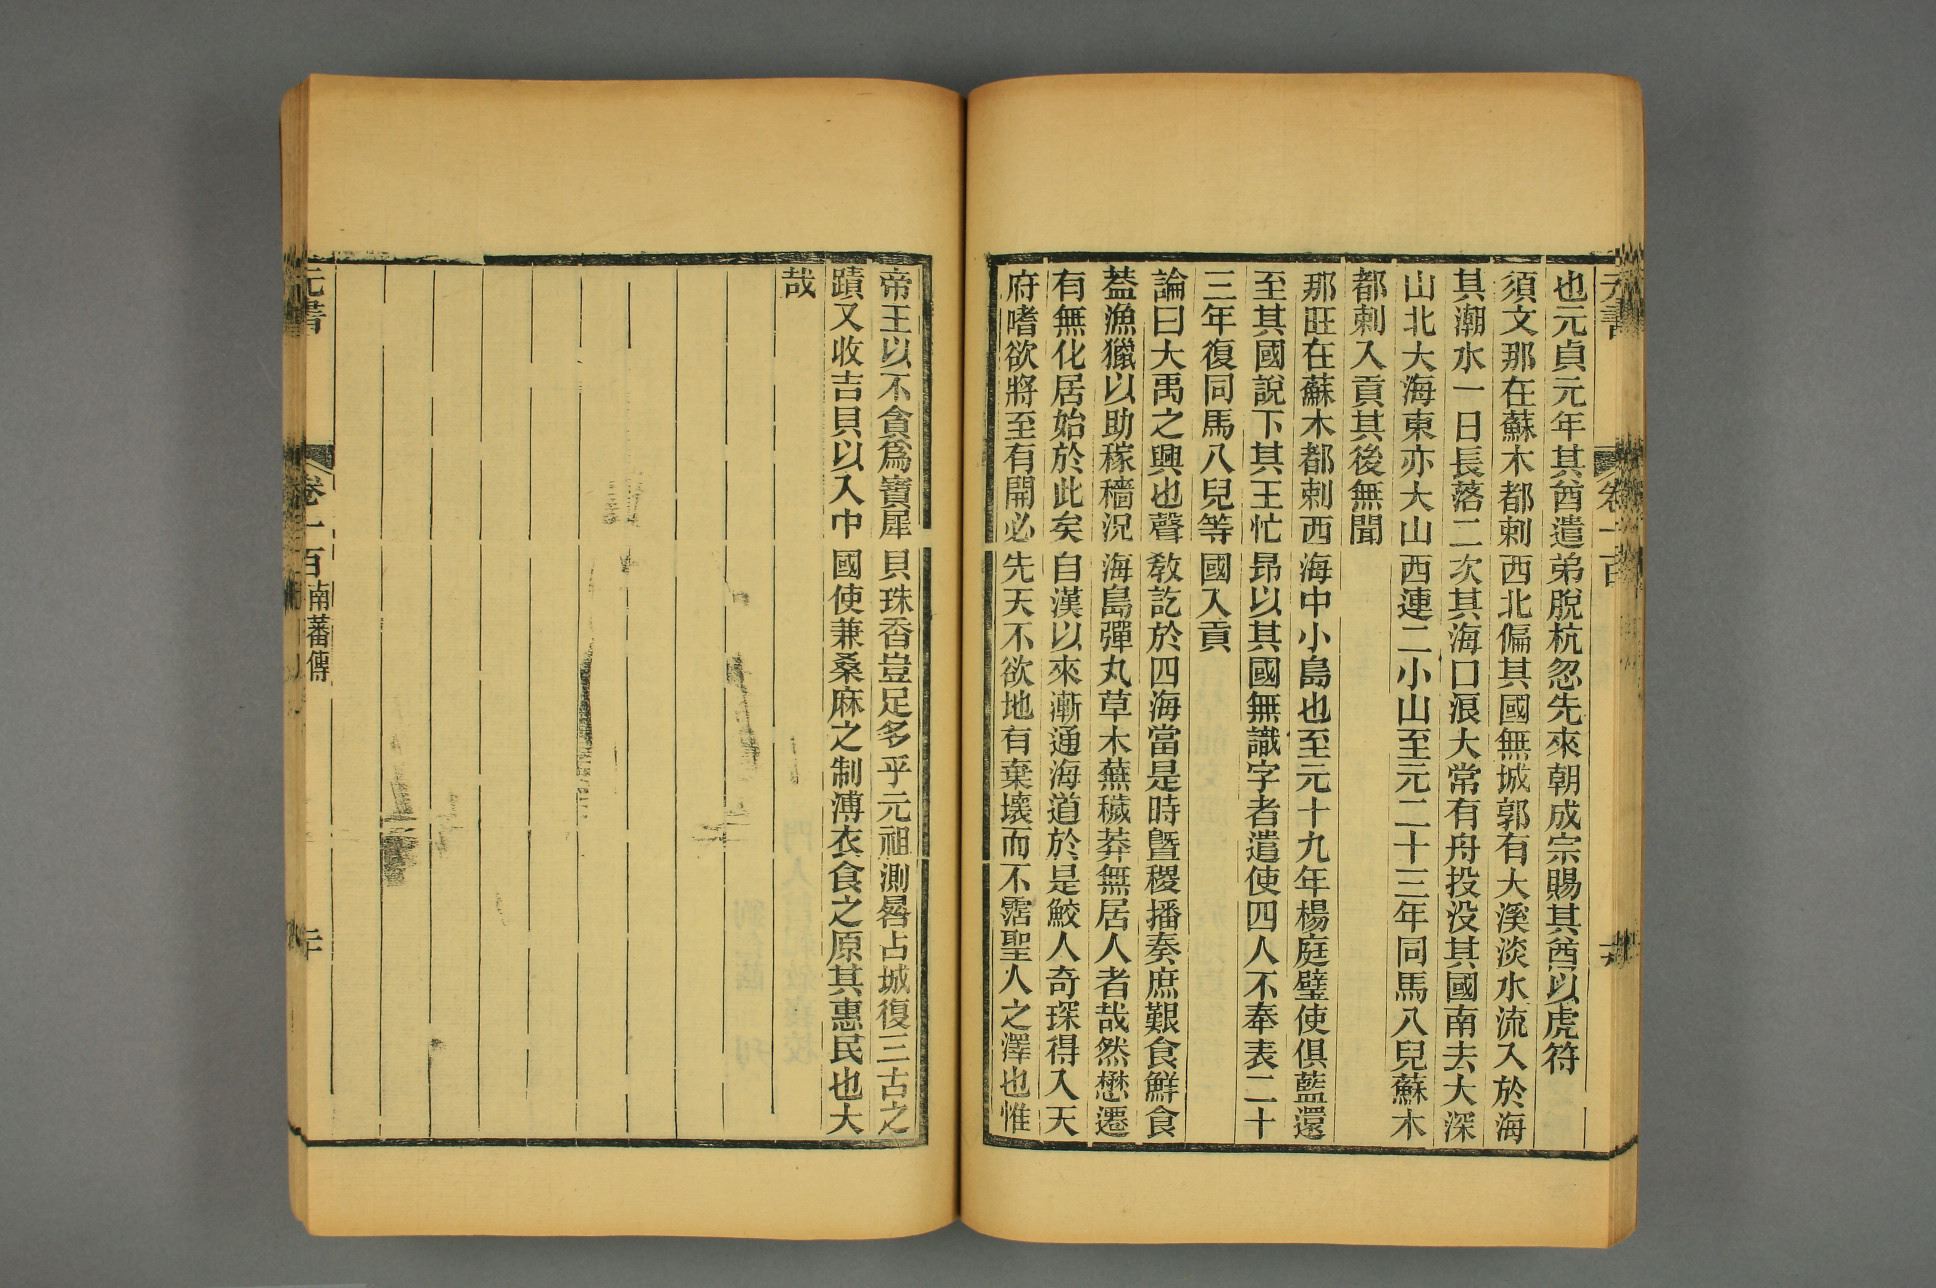 元書
卷一百
也元貞元年其酋遣弟脫杭忽先來朝成宗賜其酋以虎符
須文那在蘇木都剌西北偏其國無城郭有大溪淡水流入於海
其潮水一日長落二次其海口浪大常有舟投没其國南去大深
山北大海東亦大山西連二小山至元二十三年同馬八兒蘇木
都剌入貢其後無聞
那旺在蘇木都剌西海中小島也至元十九年楊庭璧使俱藍還
至其國說下其王忙昂以其國無識字者遣使四人不奉表二十
三年復同馬八兒等國入貢
論曰大禹之興也聲敎訖於四海當是時曁稷播奏庶艱食鮮食
葢漁獵以助稼穡況海島彈丸草木蕪穢莽無居人者哉然懋遷
有無化居始於此矣自漢以來漸通海道於是鮫人奇琛得入天
府嗜欲將至有開必先天不欲地有棄壞而不霑聖人之澤也惟
帝王以不貪爲寶犀貝珠香豈足多乎元祖測晷占城復三古之
蹟又收吉貝以入中國使兼桑麻之制溥衣食之原其惠民也大
哉
元書
卷一百
南蕃傳
二十